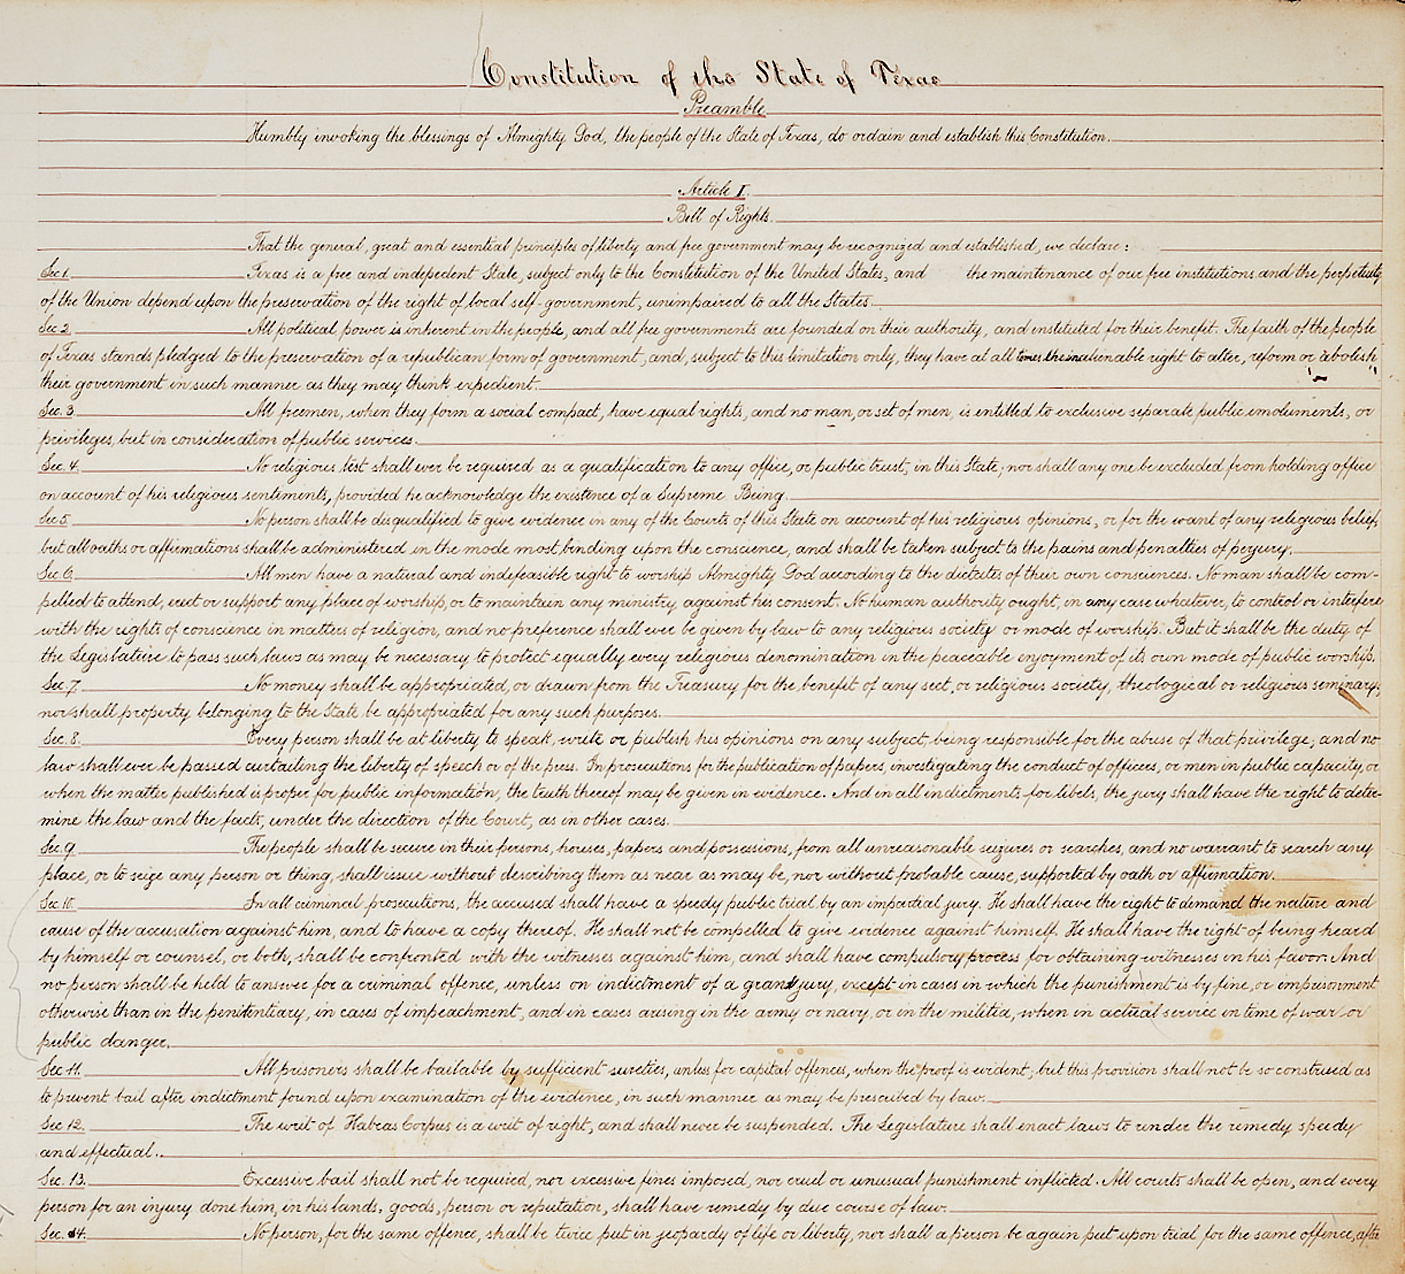 Constitution of the State of Texas
Preamble
Humbly invoking the blessings of Almighty God, the people of the State of Texas, do ordain and establish this Constitution.
Article I.
Bill of Rights.
That the general, great and essential principles of liberty and free government may be recognized and established, we declare:
Sec 1. Texas is a free and indepedent State, subject only to the Constitution of the United States, and the maintenance of our free institutions and the perpetuity
of the Union depend upon the preservation of the right of local self-government, unimpaired to all the States.
Sec 2. All political power is inherent in the people, and all free governments are founded on their authority, and instituted for their benefit. The faith of the people
of Texas stands pledged to the preservation of a republican form of government, and, subject to this limitation only, they have at all times the inalienable right to alter, reform or abolish
their government in such manner as they may think expedient.
Sec. 3. All freemen, when they form a social compact, have equal rights, and no man, or set of men, is entitled to exclusive separate public emoluments, or
privileges, but in consideration of public services.
Sec. 4. No religious test shall ever be required as a qualification to any office, or public trust, in this State; nor shall any one be excluded from holding office
on account of his religious sentiments, provided he acknowledge the existence of a Supreme Being.
Sec 5. No person shall be disqualified to give evidence in any of the Courts of this State on account of his religious opinions, or for the want of any religious belief,
but all oaths or affirmations shall be administered in the mode most binding upon the conscience, and shall be taken subject to the pains and penalties of perjury.
Sec. 6. All men have a natural and indefeasible right to worship Almighty God according to the dictates of their own consciences. No man shall be com-
pelled to attend, erect or support any place of worship, or to maintain any ministry against his consent. No human authority ought, in any case whatever, to control or interfere
with the rights of conscience in matters of religion, and no preference shall ever be given by law to any religious society or mode of worship. But it shall be the duty of
the Legislature to pass such laws as may be necessary to protect equally every religious denomination in the peaceable enjoyment of its own mode of public worship.
Sec. 7. No money shall be appropriated, or drawn from the Treasury for the benefit of any sect, or religious society, theological or religious seminary;
nor shall property belonging to the State be appropriated for any such purposes.
Sec. 8. Every person shall be at liberty to speak, write or publish his opinions on any subject, being responsible for the abuse of that privilege; and no
law shall ever be passed curtailing the liberty of speech or of the press. In prosecutions for the publication of papers, investigating the conduct of officers, or men in public capacity, or
when the matter published is proper for public information, the truth thereof may be given in evidence. And in all indictments for libels, the jury shall have the right to deter-
mine the law and the facts, under the direction of the Court, as in other cases.
Sec. 9 The people shall be secure in their persons, houses, papers and possessions, from all unreasonable seizures or searches, and no warrant to search any
place, or to seize any person or thing, shall issue without describing them as near as may be, nor without probable cause, supported by oath or affirmation.
Sec. 10. In all criminal prosecutions, the accused shall have a speedy public trial by an impartial jury. He shall have the right to demand the nature and
cause of the accusation against him, and to have a copy thereof. He shall not be compelled to give evidence against himself. He shall have the right of being heard
by himself or counsel, or both, shall be confronted with the witnesses against him, and shall have compulsory process for obtaining witnesses in his favor. And
no person shall be held to answer for a criminal offence, unless on indictment of a grand jury, except in cases in which the punishment is by fine, or imprisonment
otherwise than in the penitentiary, in cases of impeachment, and in cases arising in the army or navy, or in the militia, when in actual service in time of war or
public danger.
Sec 11. All prisoners shall be bailable by sufficient sureties, unless for capital offences, when the proof is evident; but this provision shall not be so construed as
to prevent bail after indictment found upon examination of the evidence, in such manner as may be prescribed by law.
Sec 12. The writ of Habeas Corpus is a writ of right, and shall never be suspended. The Legislature shall enact laws to render the remedy speedy
and effectual.
Sec. 13. Excessive bail shall not be required, nor excessive fines imposed, nor cruel or unusual punishment inflicted. All courts shall be open, and every
person for an injury done him, in his lands, goods, person or reputation, shall have remedy by due course of law.
Sec. 14. No person, for the same offence, shall be twice put in jeopardy of life or liberty, nor shall a person be again put upon trial for the same offence, after